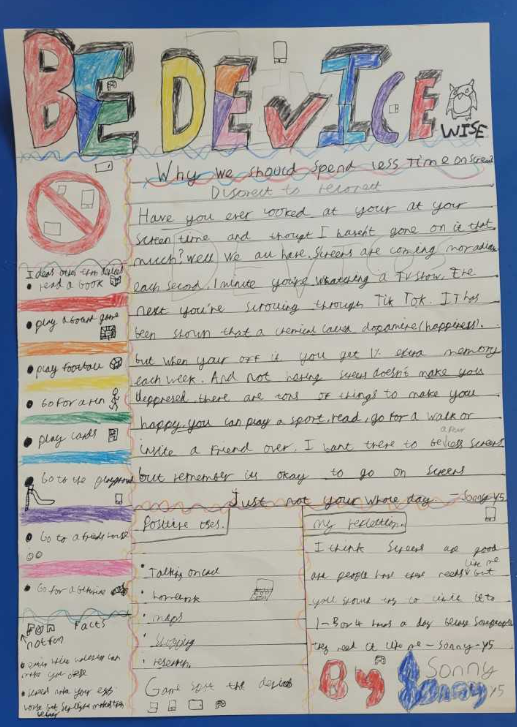 BE DEVICE
WISE
Why we should spend less time on screen
Disconect to reconect
Have you ever looked at your at your
screen time and though I hasen't gone on it that
much? Well we all have. Screens are coming mor
each second. 1 minute you're whatching a TV show. The
next you're scrolling through Tik Tok. It has
been shown that a chemical dopamine (happiness).
but when your off it you get 1% extra memory
each week. And not having screens doesn't make you
depressed there are tons of things to make you
happy. you can play a sport, read, go for a walk or
invite a friend over. I want there to be less screens
but remember its okay to go on screens
Just not your whole day - Sonny Y5
Ideas other than
read a book
play a board game
play football
Go for a run
play cards
Go to the playground
Go to a friends house
Go for a
Facts
Positive uses.
Talking on call
homework
maps
research
Game spot the devices
my reflection.
I think screens are good
like me
you should try to
1-3 or 4 hours a day
they need it like me - Sonny - Y5
By
Sonny
Sonny Y5